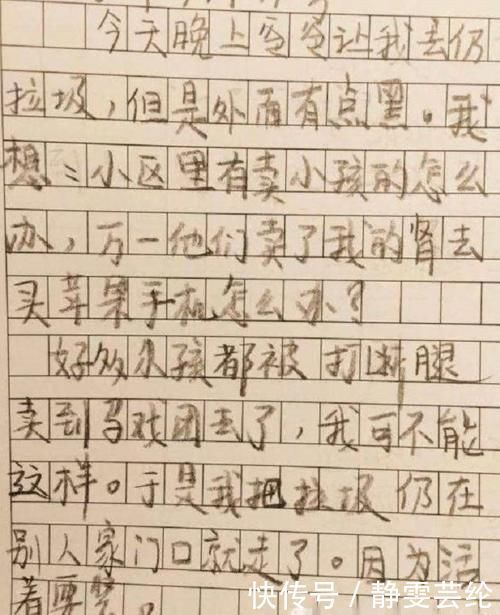 今天晚上爸爸让我去仍
垃圾，但是外面有点黑。我
想：小区里有卖小孩的怎么
办，万一他们卖了我的肾去
买苹果手机怎么办？
好多小孩都被打断腿
卖到马戏团去了，我可不能
这样。于是我把垃圾仍在
别人家门口就走了。因为活
着要紧。
快传号/静雯芸纶